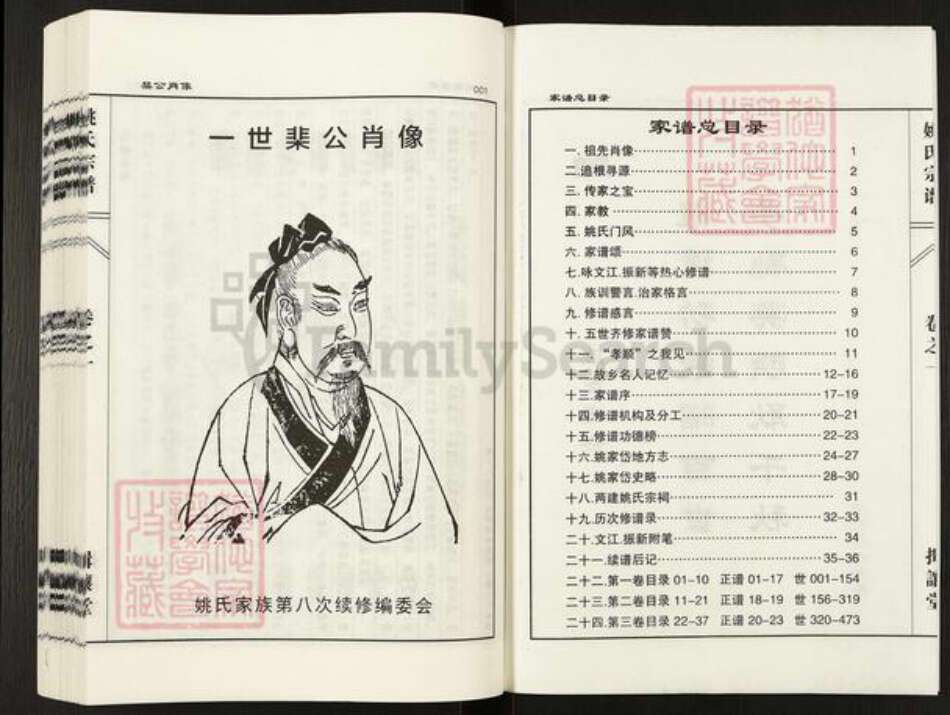 棐公肖像
001
一世棐公肖像
姚氏宗谱
姚氏家族第八次续修编委会
FamilySearch
家谱总目录
家谱总目录
一. 祖先肖像 1
二.追根寻源 2
三. 传家之宝 3
四. 家教 4
五. 姚氏门风 5
六. 家谱颂 6
七.咏文江.振新等热心修谱 7
八. 族训警言.治家格言 8
九. 修谱感言 9
十. 五世齐修家谱赞 10
十一. “孝顺”之我见 11
十二.故乡名人记忆 12-16
十三.家谱序 17-19
十四.修谱机构及分工 20-21
十五.修谱功德榜 22-23
十六.姚家岱地方志 24-27
十七.姚家岱史略 28-30
十八.两建姚氏宗祠 31
十九.历次修谱录 32-33
二十.文江.振新附笔 34
二十一.续谱后记 35-36
二十二.第一卷目录 01-10 正谱 01-17 世 001-154
二十三.第二卷目录 11-21 正谱 18-19 世 156-319
二十四.第三卷目录 22-37 正谱 20-23 世 320-473
姚氏宗谱
卷之一